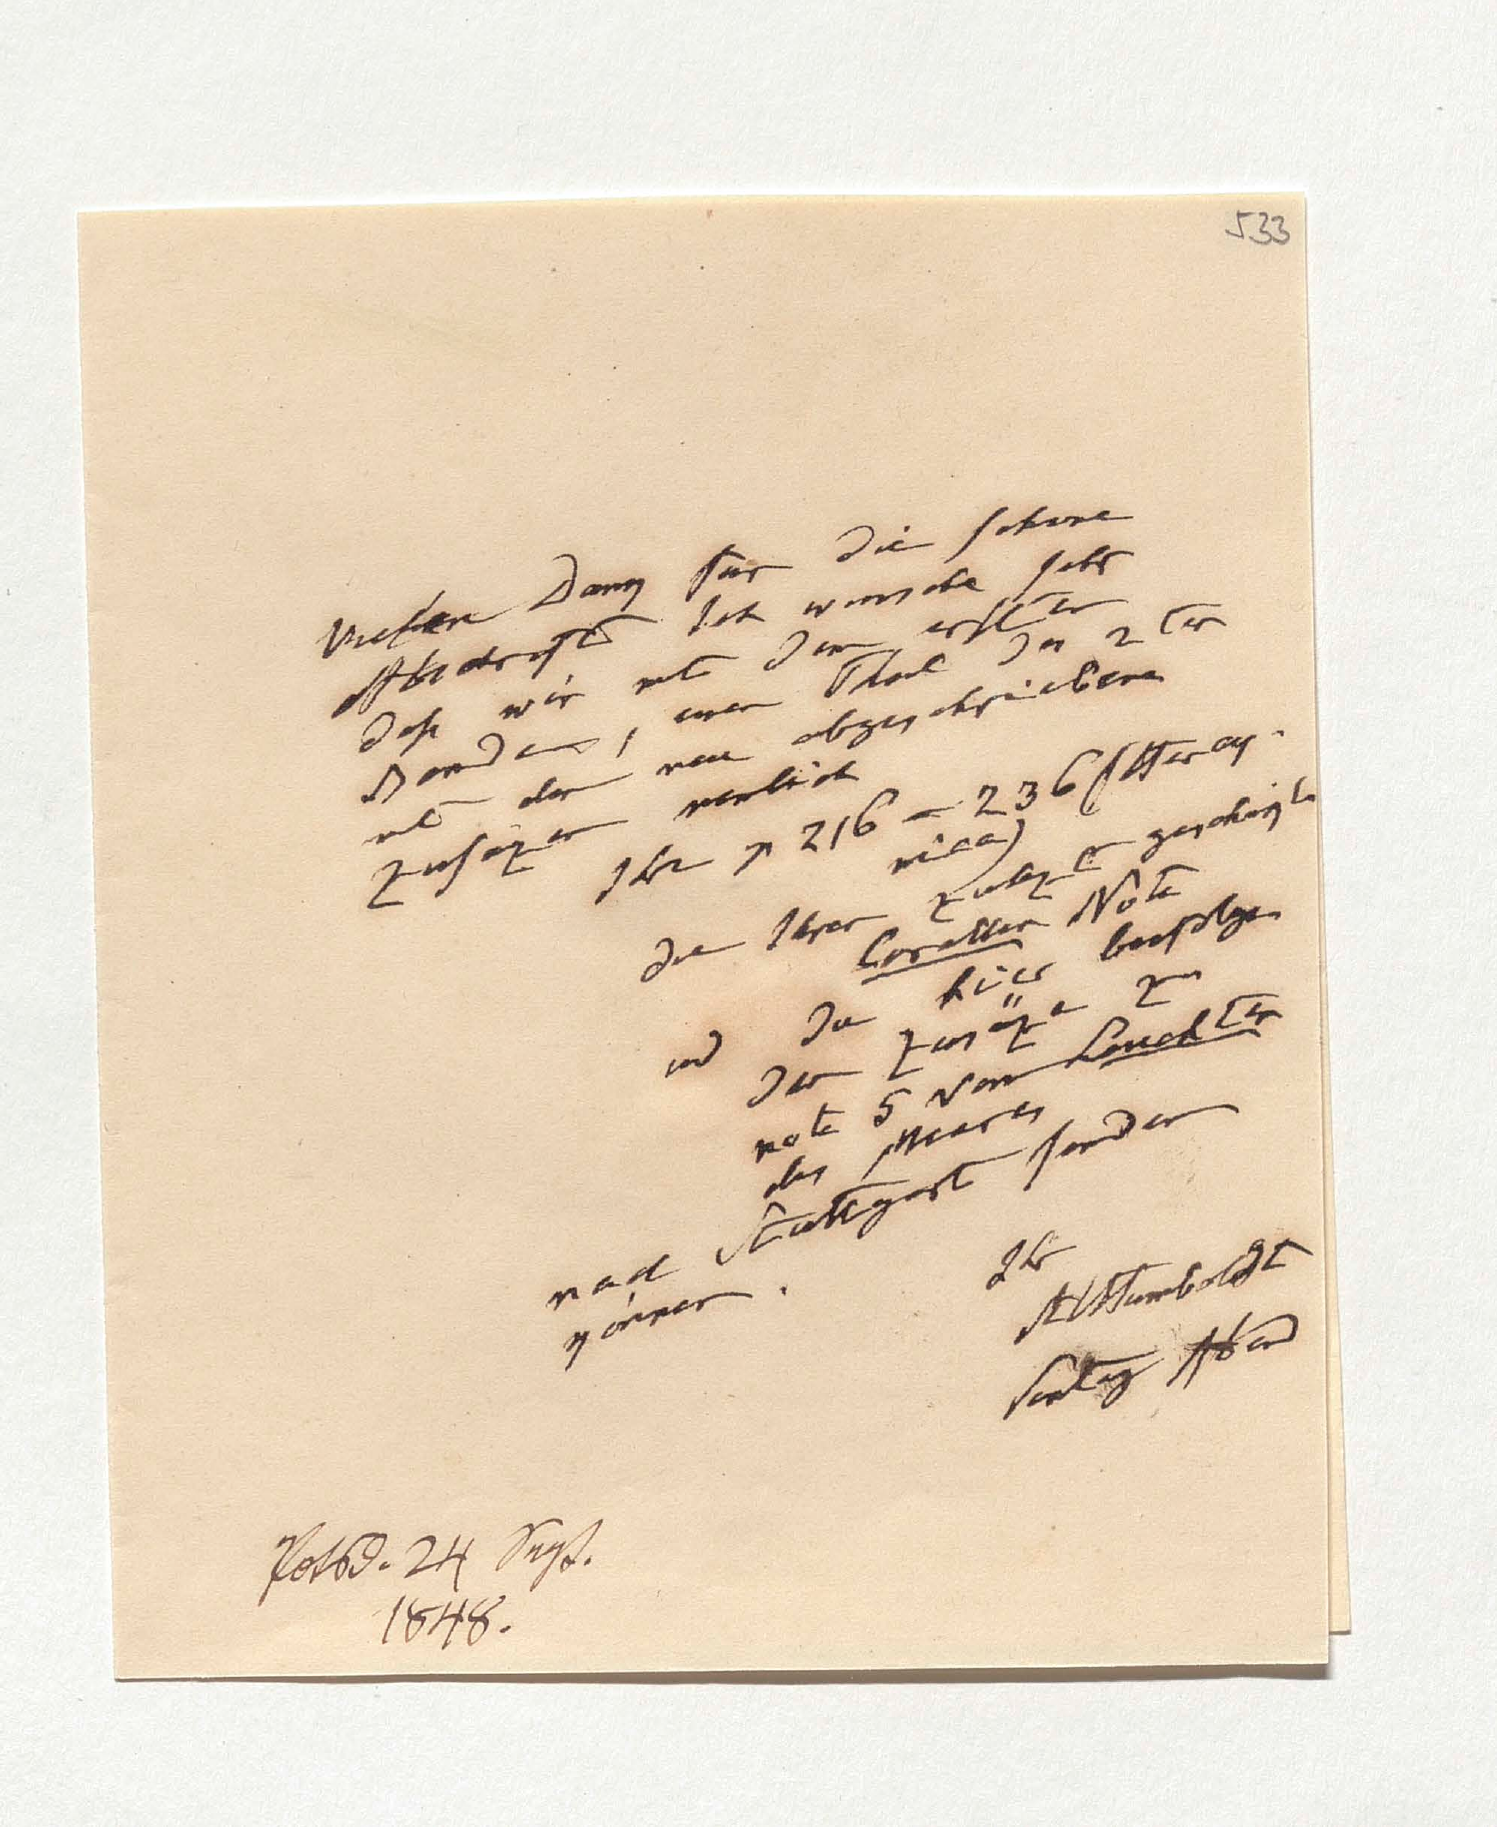 533
Vielen Dank für die schöne
Abschrift Ich wünsche sehr
daß wir mit dem ersten
Bande, einen Theil des 2ten
mit den neu abgeschriebenen
Zusäzen nemlich
Ihr p 216 – 236 (Steray
die Ihnen zulezt geschikte
Corallen Note
und die hier beifolgen
der Zusäze zu
note 5 vom Leuchten
des Meeres
nach Stuttgart senden
können.
Ihr
AvHumboldt
Sontag Abend
Potsd. 24 Sept.
1848.